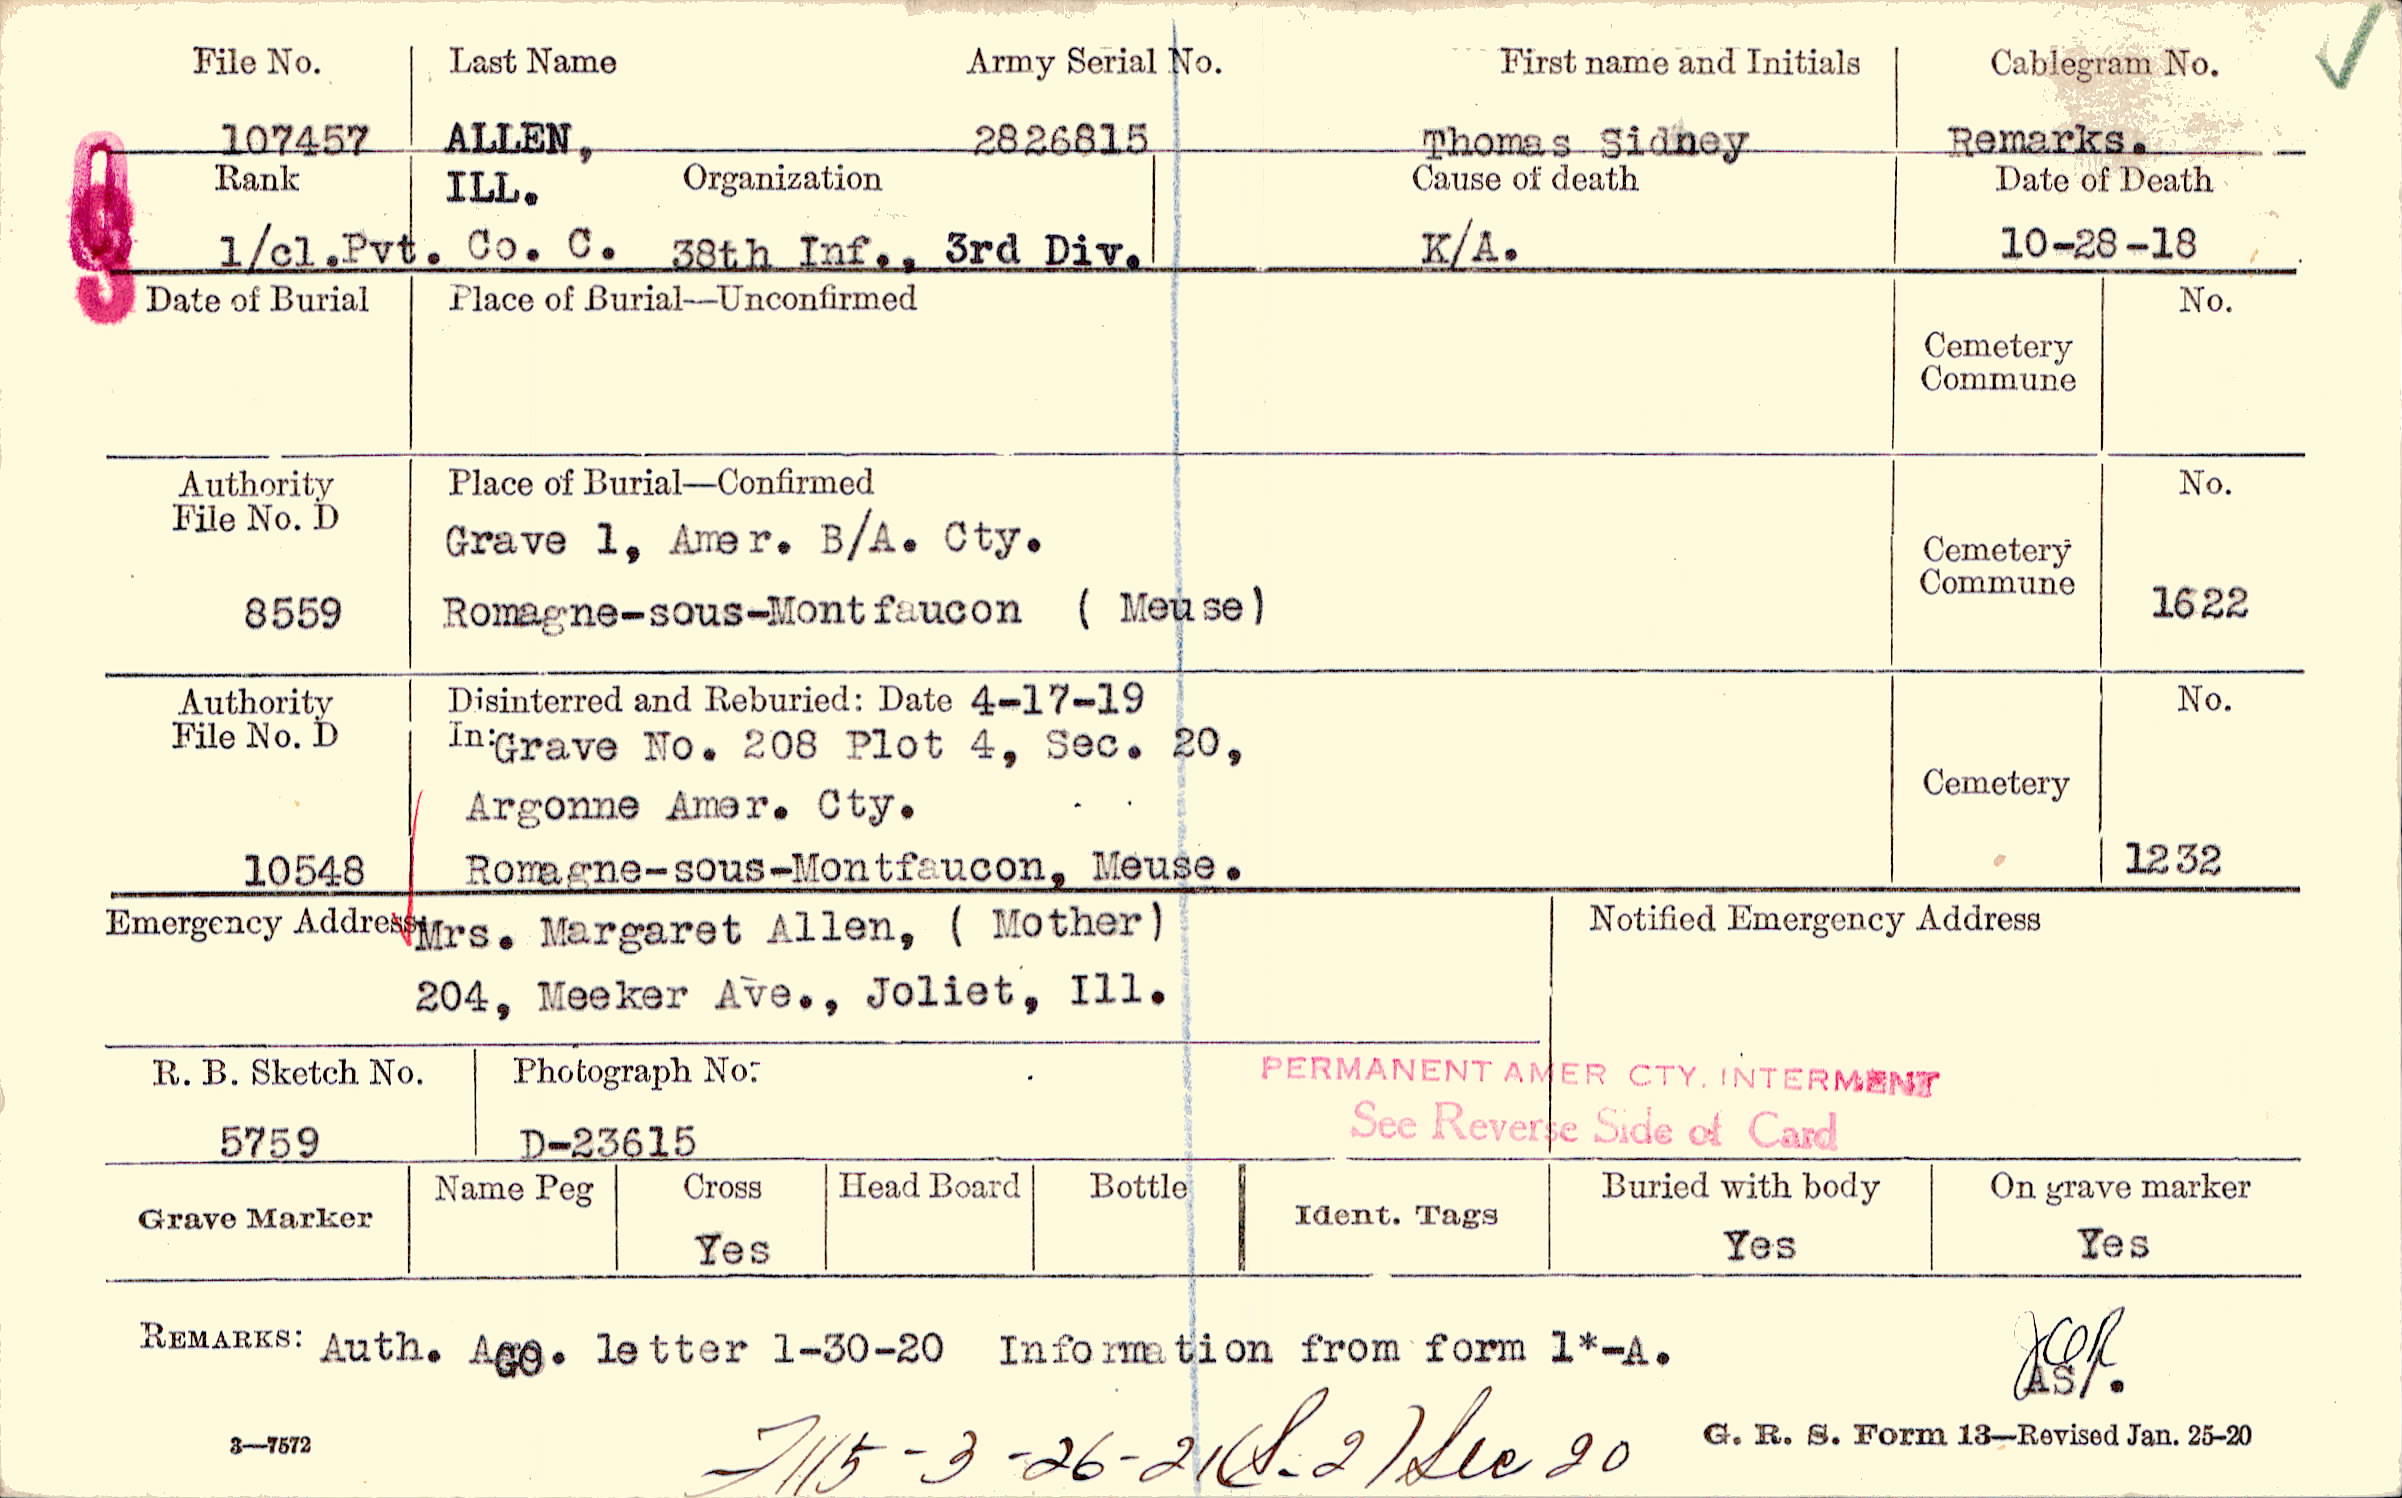 File No. Last Name Army Serial No. First name and Initials Cablegram No.
107457 ALLEN, 2826815 Thomas Sidney Remarks.
Rank ILL. Organization Cause of death Date of Death
1/cl.Pvt. Co. C. 38th Inf., 3rd Div. K/A. 10-28-18
Date of Burial Place of Burial—Unconfirmed No.
Cemetery
Commune
Authority Place of Burial—Confirmed No.
File No. D
Grave 1, Amer. B/A. Cty.
Cemetery
Commune
8559 Romagne-sous-Montfaucon ( Meuse) 1622
Authority Disinterred and Reburied: Date 4-17-19 No.
File No. D In: Grave No. 208 Plot 4, Sec. 20,
Cemetery
Argonne Amer. Cty.
10548 Romagne-sous-Montfaucon, Meuse. 1232
Emergency Address Mrs. Margaret Allen, ( Mother) Notified Emergency Address
204, Meeker Ave., Joliet, Ill.
R. B. Sketch No. Photograph No.
PERMANENT AMER CTY. INTERMENT
See Reverse Side of Card
5759 D-23615
Grave Marker Name Peg Cross Head Board Bottle Ident. Tags Buried with body On grave marker
Yes Yes Yes
REMARKS: Auth. AGO. letter 1-30-20 Information from form 1*-A.
AS/.
3—7572 G. R. S. Form 13—Revised Jan. 25-20
-3-26-21 (S.2) Sec 20